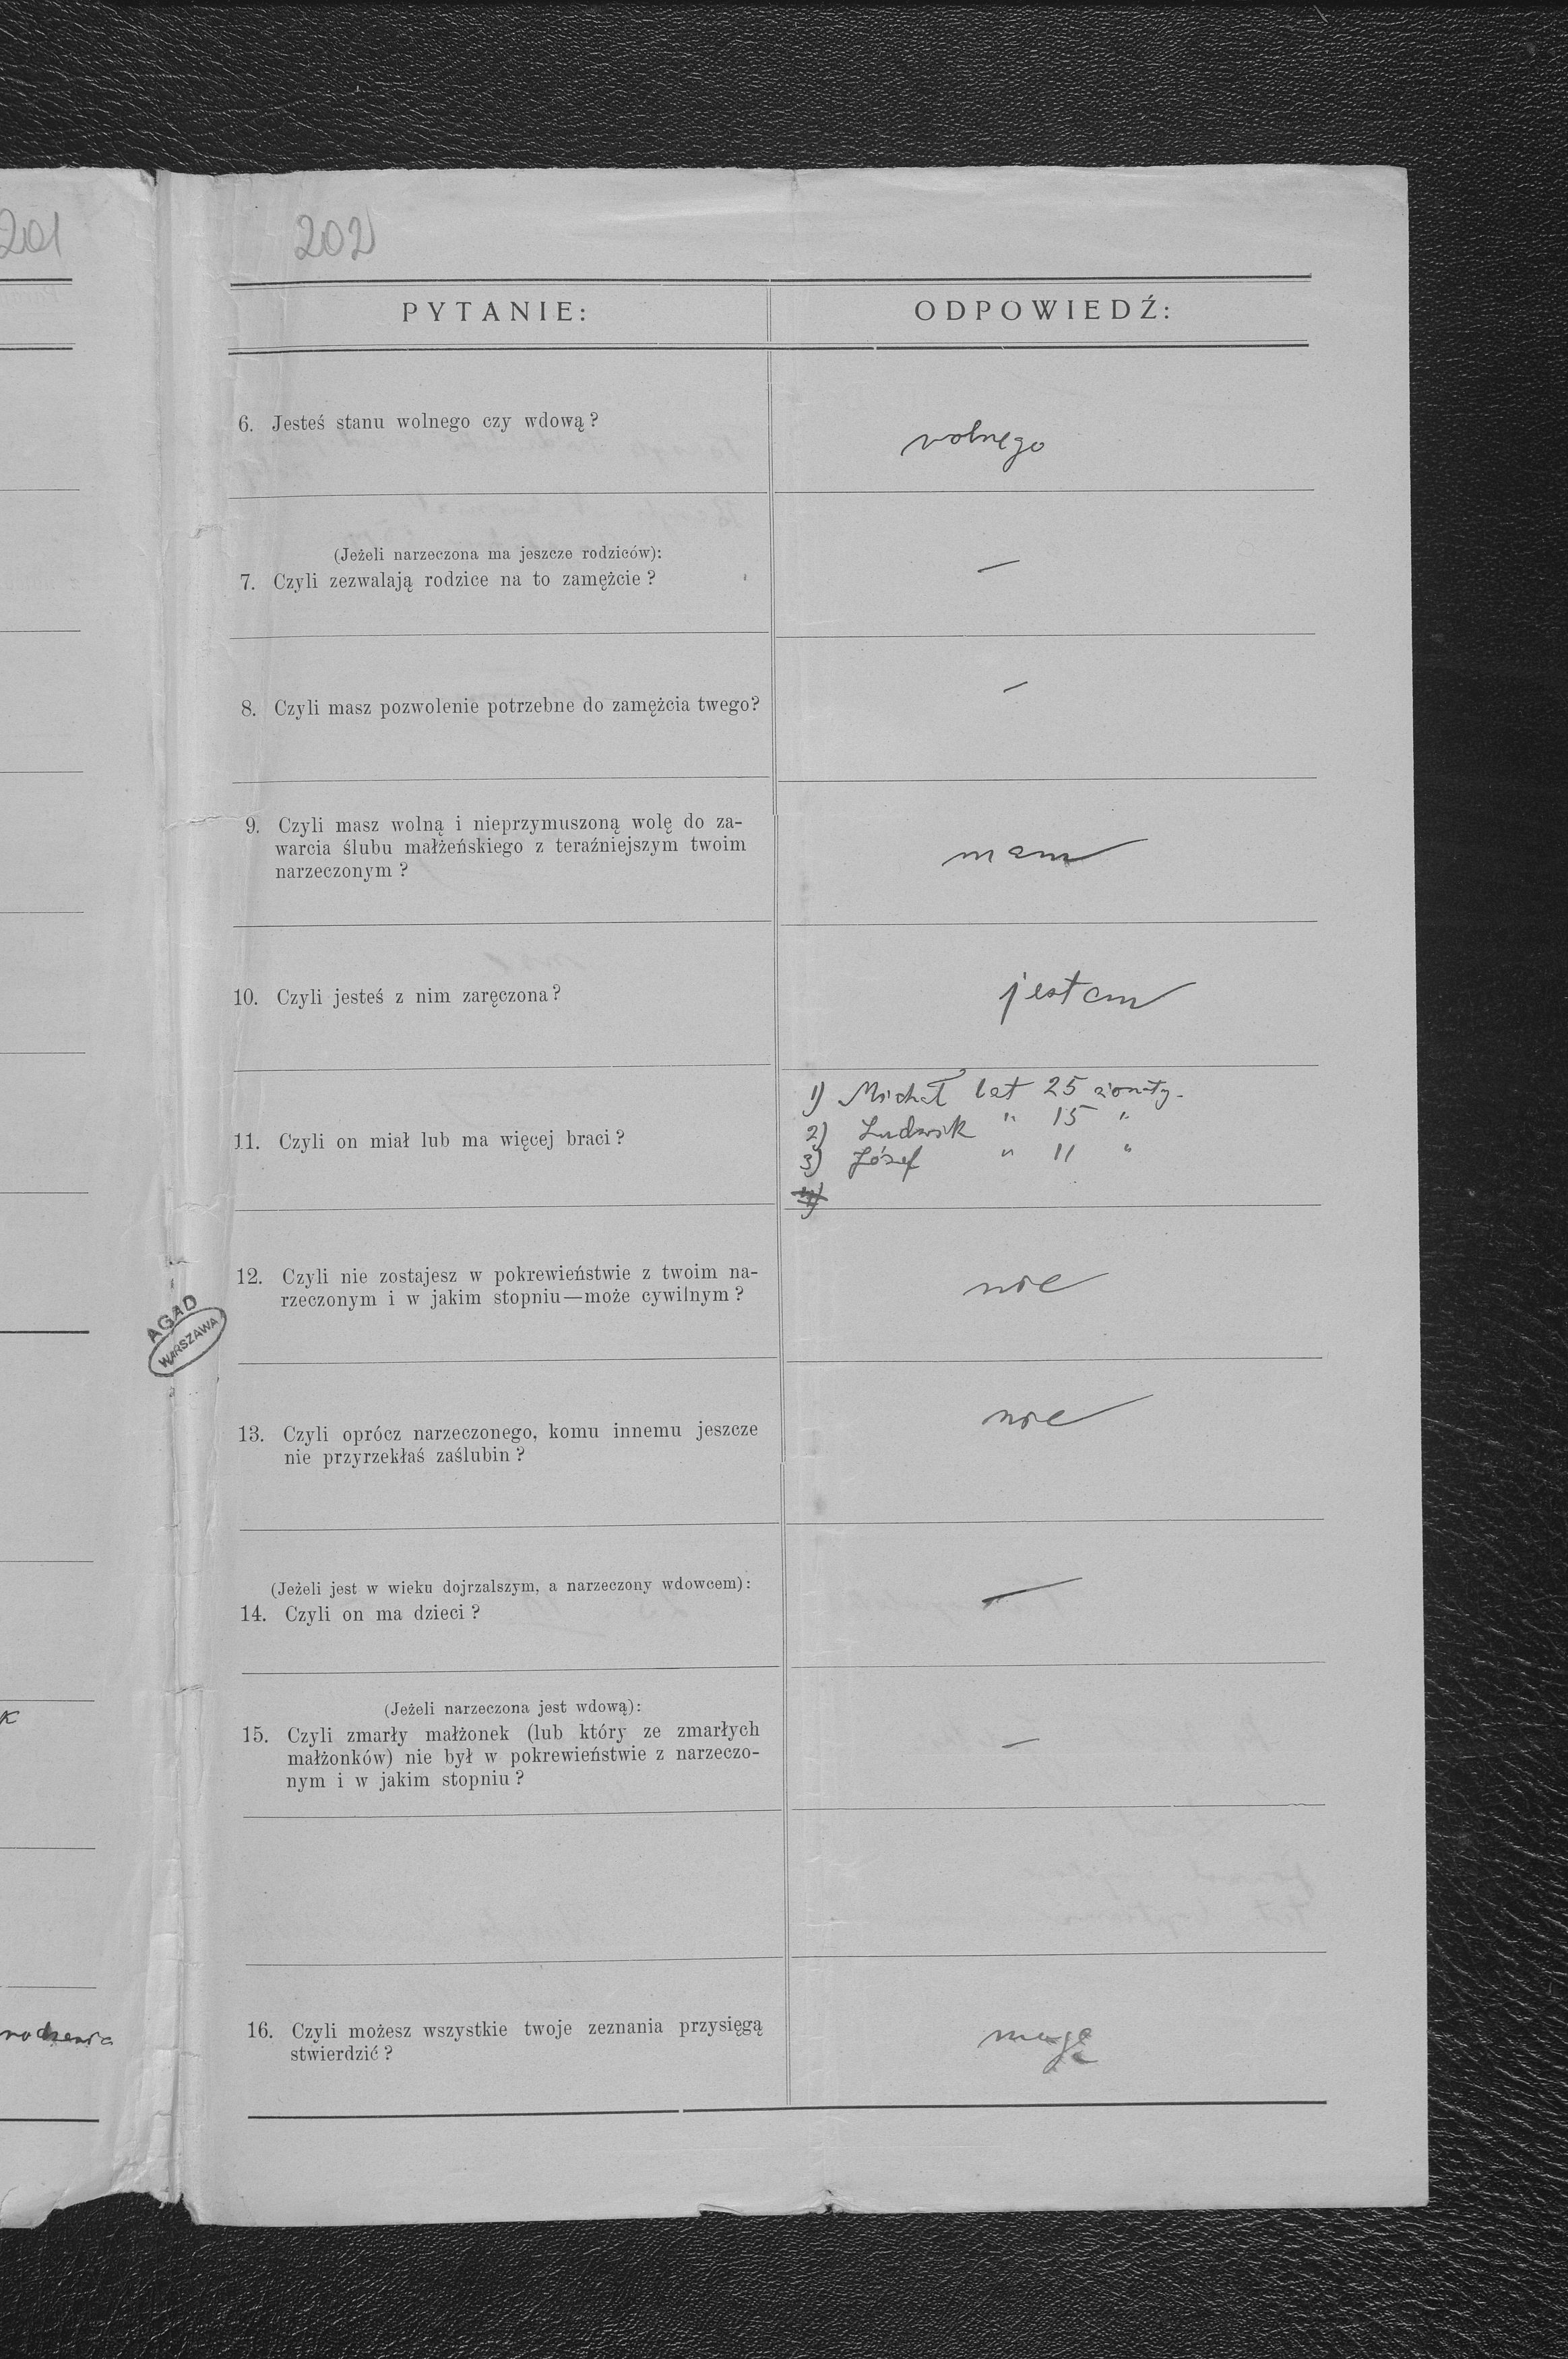 201
202
PYTANIE:
ODPOWIEDŹ:
6. Jesteś stanu wolnego czy wdową?
wolnego
(Jeżeli narzeczona ma jeszcze rodziców):
7. Czyli zezwalają rodzice na to zamężcie?
—
8. Czyli masz pozwolenie potrzebne do zamężcia twego?
—
9. Czyli masz wolną i nieprzymuszoną wolę do za-
warcia ślubu małżeńskiego z teraźniejszym twoim
narzeczonym?
mam
10. Czyli jesteś z nim zaręczona?
jestem
11. Czyli on miał lub ma więcej braci?
1) Michał lat 25 żonaty.
2) Ludwik " 15 "
3) Józef " 11 "
12. Czyli nie zostajesz w pokrewieństwie z twoim na-
rzeczonym i w jakim stopniu—może cywilnym?
nie
AGAD
WARSZAWA
13. Czyli oprócz narzeczonego, komu innemu jeszcze
nie przyrzekłaś zaślubin?
nie
(Jeżeli jest w wieku dojrzalszym, a narzeczony wdowcem):
14. Czyli on ma dzieci?
—
(Jeżeli narzeczona jest wdową):
15. Czyli zmarły małżonek (lub który ze zmarłych
małżonków) nie był w pokrewieństwie z narzeczo-
nym i w jakim stopniu?
—
16. Czyli możesz wszystkie twoje zeznania przysięgą
stwierdzić?
mogę